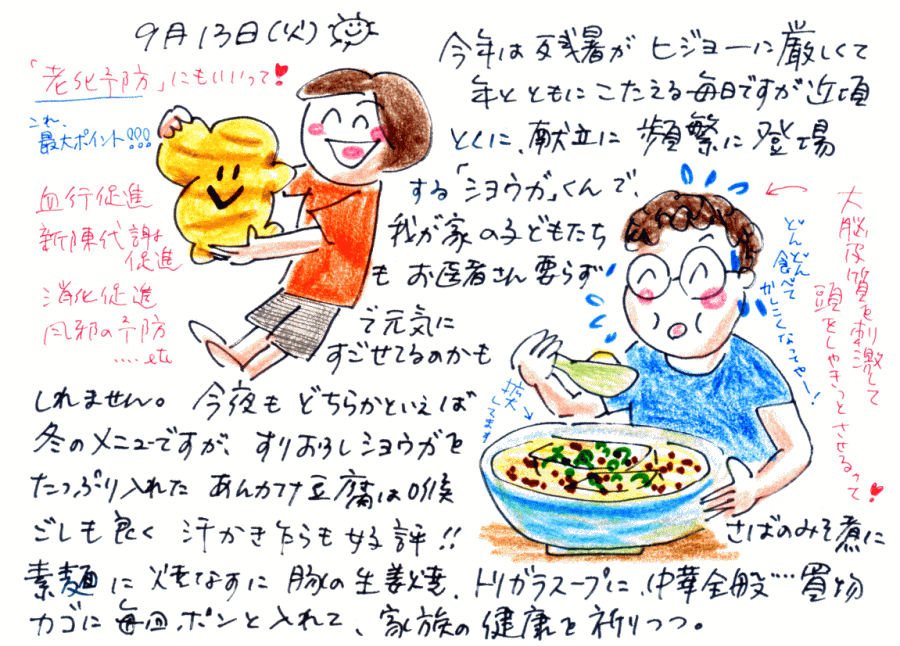 9月13日(火)
「老化予防」にもいいって!
これ、
最大ポイント!!!
血行促進
新陳代謝
促進
消化促進
風邪の予防
....etc
今年は残暑がヒジョーに厳しくて
年とともにこたえる毎日ですが近頃
とくに、献立に頻繁に登場
する「ショウガ」くんで、
我が家の子どもたち
もお医者さん要らず
で元気に
すごせてるのかも
しれません。今夜もどちらかといえば
冬のメニューですが、すりおろしショウガを
たっぷり入れたあんかけ豆腐はの喉
ごしも良く汗かきながらも好評!!
さばのみそ煮に
素麺に焼なすに豚の生姜焼、トリガラスープに、中華全般....買物
カゴに毎回ポンと入れて、家族の健康を祈りつつ。
大脳皮質を刺激して
頭をしゃきっとさせるって
どんどん
食べて
かしこくなってやー!
拡大
してます